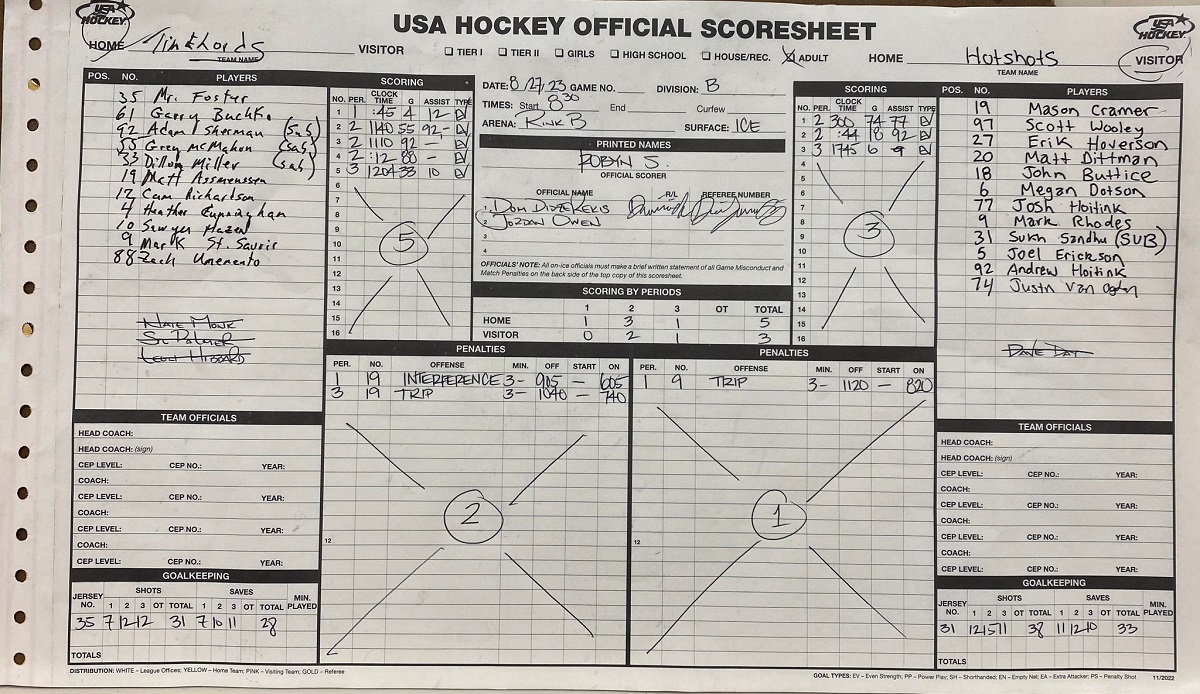 USA HOCKEY OFFICIAL SCORESHEET
USA HOCKEY
HOME
TEAM NAME
VISITOR ☐ TIER I ☐ TIER II ☐ GIRLS ☐ HIGH SCHOOL ☐ HOUSE/REC. ☒ ADULT
HOME Hotshots
TEAM NAME
USA HOCKEY
VISITOR
POS. NO. PLAYERS
35 Mr. Foster
61 Garry
92 Adam Sherman (Sub)
55 Greg McMahon (sub)
33 Dillon Miller (sub)
19 Matt Assmenssen
12 Cam Richardson
4 Heather Cunningham
10 Sawyer Hazen
9 Mark St. Sauvir
88 Zach Umenento
NATE MONK
SCORING
NO. PER. CLOCK TIME G ASSIST TYPE
1 1 :45 4 12 - EV
2 2 1140 55 92 - EV
3 2 1110 92 - EV
4 2 :12 88 - EV
5 3 1204 33 10 EV
6
7
8
9
10
11
12
13
14
15
16
5
DATE: 8/27/23 GAME NO. DIVISION: B
TIMES: Start 8:30 End Curfew
ARENA: RINK B SURFACE: ICE
PRINTED NAMES
ROBYN S.
OFFICIAL SCORER
OFFICIAL NAME R/L REFEREE NUMBER
1 DOM
2 JORDAN OWEN
3
4
OFFICIALS' NOTE: All on-ice officials must make a brief written statement of all Game Misconduct and
Match Penalties on the back side of the top copy of this scoresheet.
SCORING BY PERIODS
1 2 3 OT TOTAL
HOME 1 3 1 5
VISITOR 0 2 1 3
SCORING
NO. PER. CLOCK TIME G ASSIST TYPE
1 2 300 74 77 EV
2 2 :44 18 92 - EV
3 3 1745 6 9 EV
4
5
6
7
8
9
10
11
12
13
14
15
16
3
POS. NO. PLAYERS
19 Mason Cramer
97 Scott Wooley
27 Erik Hoverson
20 Matt Dittman
18 John Buttice
6 Megan Dotson
77 Josh Hoitink
9 Mark Rhodes
31 Sukh Sandhu (SUB)
5 Joel Erickson
92 Andrew Hoitink
74 Justin Van Ogten
DAVE DAY
PENALTIES
PER. NO. OFFENSE MIN. OFF START ON
1 19 INTERFERENCE 3 - 905 - 605
3 19 TRIP 3 - 1040 - 740
12
2
PENALTIES
PER. NO. OFFENSE MIN. OFF START ON
1 9 TRIP 3 - 1120 - 820
12
1
TEAM OFFICIALS
HEAD COACH:
HEAD COACH: (sign)
CEP LEVEL: CEP NO.: YEAR:
COACH:
CEP LEVEL: CEP NO.: YEAR:
COACH:
CEP LEVEL: CEP NO.: YEAR:
COACH:
CEP LEVEL: CEP NO.: YEAR:
GOALKEEPING
SHOTS SAVES
JERSEY NO. 1 2 3 OT TOTAL 1 2 3 OT TOTAL MIN. PLAYED
35 7 12 12 31 7 10 11 28
TOTALS
TEAM OFFICIALS
HEAD COACH:
HEAD COACH: (sign)
CEP LEVEL: CEP NO.: YEAR:
COACH:
CEP LEVEL: CEP NO.: YEAR:
COACH:
CEP LEVEL: CEP NO.: YEAR:
COACH:
CEP LEVEL: CEP NO.: YEAR:
GOALKEEPING
SHOTS SAVES
JERSEY NO. 1 2 3 OT TOTAL 1 2 3 OT TOTAL MIN. PLAYED
31 12 15 11 38 11 12 10 33
TOTALS
DISTRIBUTION: WHITE – League Offices; YELLOW – Home Team; PINK – Visiting Team; GOLD – Referee
GOAL TYPES: EV – Even Strength, PP – Power Play; SH – Shorthanded; EN – Empty Net; EA – Extra Attacker; PS – Penalty Shot 11/2022